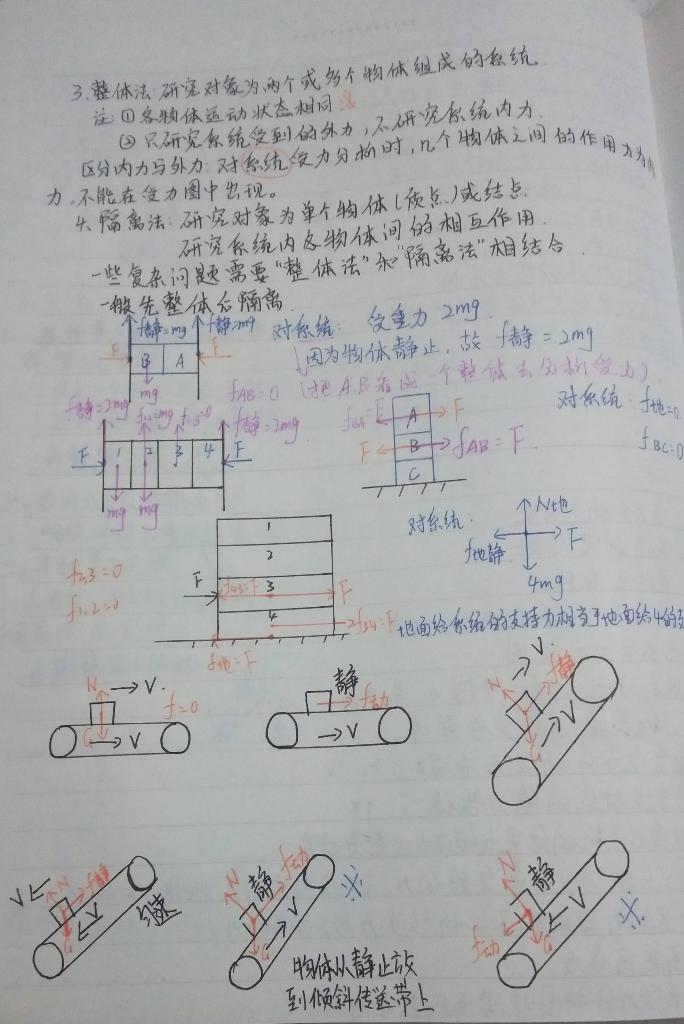 3.整体法:研究对象为两个或多个物体组成的系统.
注:①各物体运动状态相同
②只研究系统受到的外力,不研究系统内力.
区分内力与外力:对系统受力分析时,几个物体之间的作用力为内
力,不能在受力图中出现。
4.隔离法:研究对象为单个物体(质点)或结点.
研究系统内各物体间的相互作用.
一些复杂问题需要“整体法”和“隔离法”相结合.
一般先整体后隔离.
f静=mg f静=mg
F B A F
mg
对系统: 受重力 2mg
因为物体静止,故 f静=2mg
(把A.B看成一个整体去分析受力)
fAB=0
f静=2mg f12=mg f23=0 f静=2mg
F 1 2 3 4 F
mg mg
fBA=F A F
F B fAB=F
C
对系统: f地=0
fBC=0
1
2
F f43=F 3 F
4 f34=F
f地=F
f23=0
f1,2=0
对系统:
N地
f地静 F
4mg
地面给系统的支持力相当于地面给4的支
N V f=0
G V
静
f动
V
V N f静
G V
静
V
V N f静
G V
匀速
N 静 f动
G V
N 静
f动 G V
物体从静止放
到倾斜传送带上